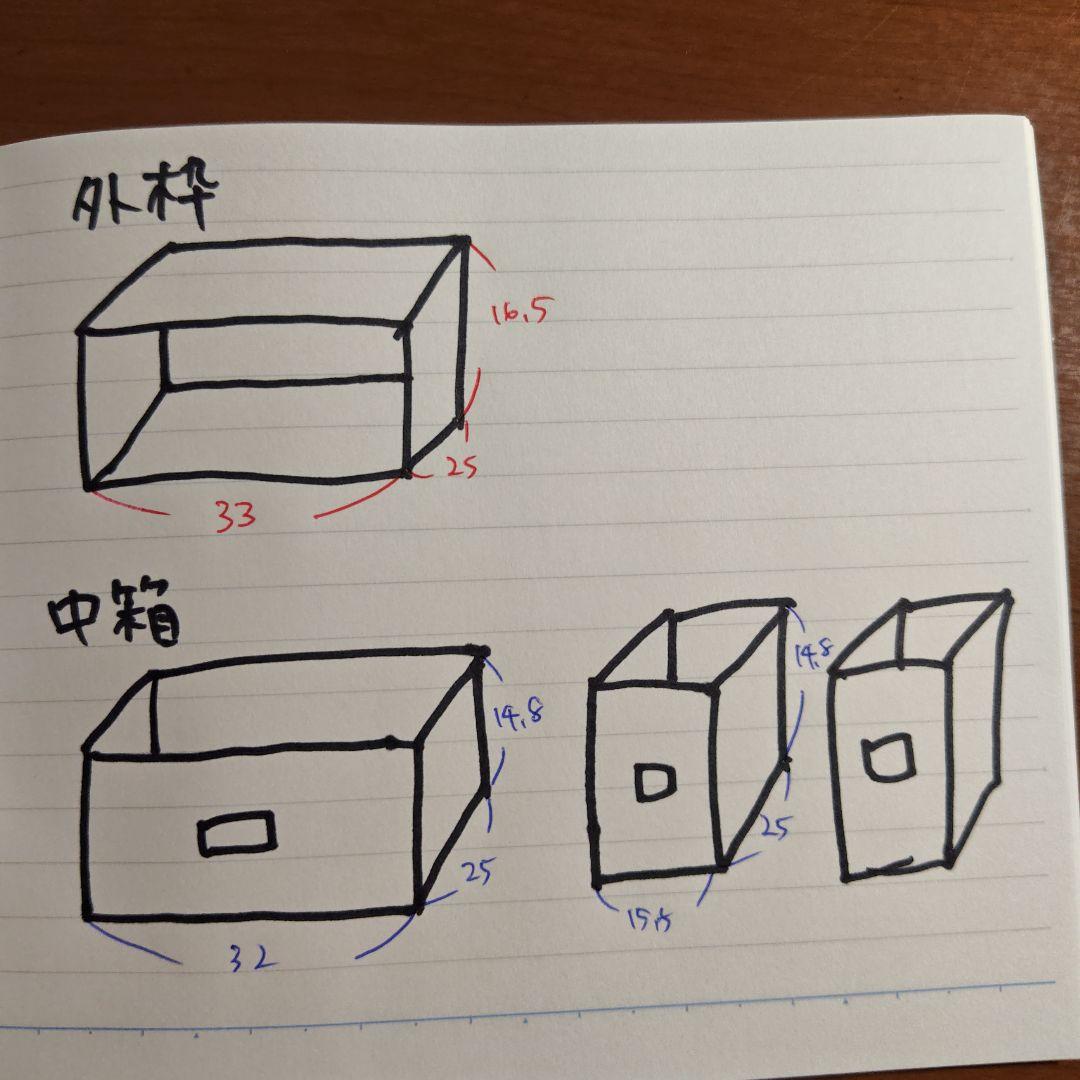 外枠
16.5
25
33
中箱
14.8
25
32
14.8
25
15.5